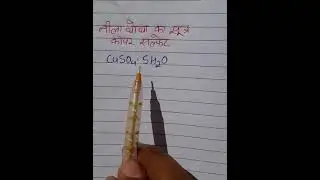 नीला थोथा का सूत्र
कॉपर सल्फेट
CuSO₄·5H₂O